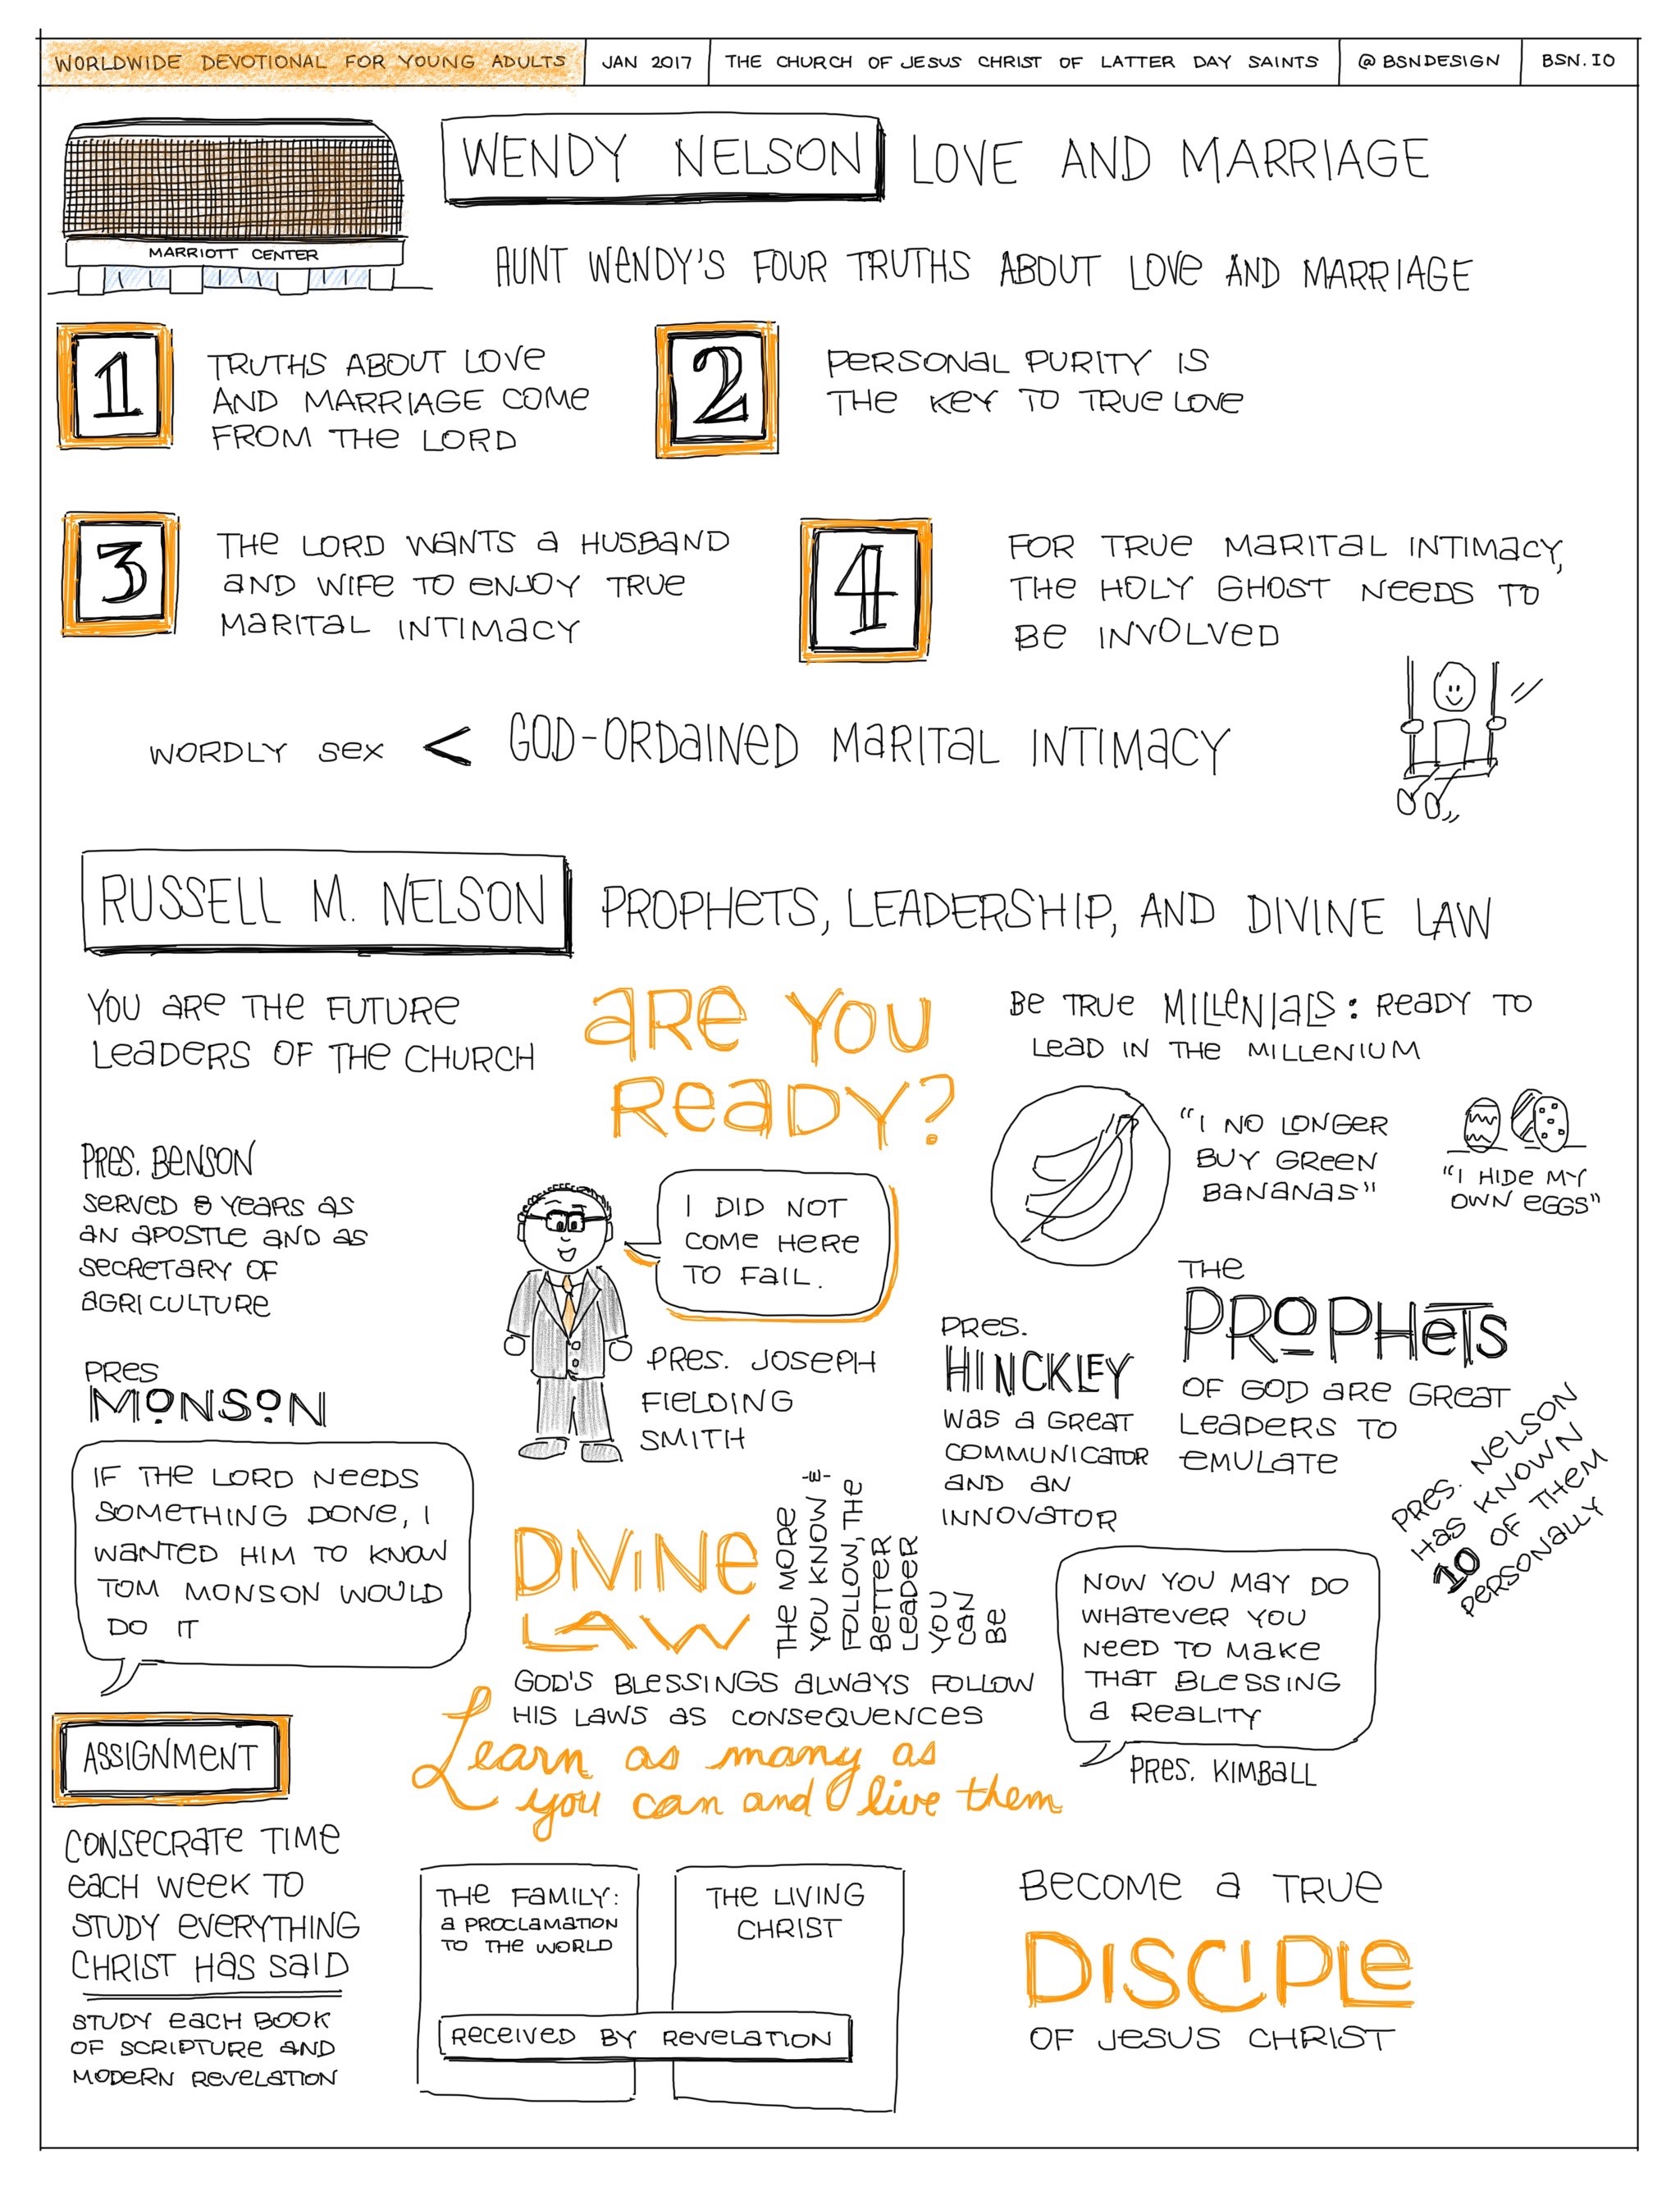 WORLDWIDE DEVOTIONAL FOR YOUNG ADULTS
JAN 2017
THE CHURCH OF JESUS CHRIST OF LATTER DAY SAINTS
@BSNDESIGN
BSN.IO
MARRIOTT CENTER
WENDY NELSON
LOVE AND MARRIAGE
AUNT WENDY'S FOUR TRUTHS ABOUT LOVE AND MARRIAGE
1
TRUTHS ABOUT LOVE
AND MARRIAGE COME
FROM THE LORD
2
PERSONAL PURITY IS
THE KEY TO TRUE LOVE
3
THE LORD WANTS A HUSBAND
AND WIFE TO ENJOY TRUE
MARITAL INTIMACY
4
FOR TRUE MARITAL INTIMACY,
THE HOLY GHOST NEEDS TO
BE INVOLVED
WORDLY SEX < GOD-ORDAINED MARITAL INTIMACY
RUSSELL M. NELSON
PROPHETS, LEADERSHIP, AND DIVINE LAW
YOU ARE THE FUTURE
LEADERS OF THE CHURCH
ARE YOU
READY?
BE TRUE MILLENIALS: READY TO
LEAD IN THE MILLENIUM
"I NO LONGER
BUY GREEN
BANANAS"
"I HIDE MY
OWN EGGS"
PRES. BENSON
SERVED 8 YEARS AS
AN APOSTLE AND AS
SECRETARY OF
AGRICULTURE
I DID NOT
COME HERE
TO FAIL.
PRES. JOSEPH
FIELDING
SMITH
PRES.
HINCKLEY
WAS A GREAT
COMMUNICATOR
AND AN
INNOVATOR
THE
PROPHETS
OF GOD ARE GREAT
LEADERS TO
EMULATE
PRES. NELSON
HAS KNOWN
10 OF THEM
PERSONALLY
PRES
MONSON
IF THE LORD NEEDS
SOMETHING DONE, I
WANTED HIM TO KNOW
TOM MONSON WOULD
DO IT
DIVINE
LAW
THE MORE
YOU KNOW &
FOLLOW, THE
BETTER
LEADER
YOU
CAN
BE
GOD'S BLESSINGS ALWAYS FOLLOW
HIS LAWS AS CONSEQUENCES
Learn as many as
you can and live them
NOW YOU MAY DO
WHATEVER YOU
NEED TO MAKE
THAT BLESSING
A REALITY
PRES. KIMBALL
ASSIGNMENT
CONSECRATE TIME
EACH WEEK TO
STUDY EVERYTHING
CHRIST HAS SAID
STUDY EACH BOOK
OF SCRIPTURE AND
MODERN REVELATION
THE FAMILY:
A PROCLAMATION
TO THE WORLD
THE LIVING
CHRIST
RECEIVED BY REVELATION
BECOME A TRUE
DISCIPLE
OF JESUS CHRIST